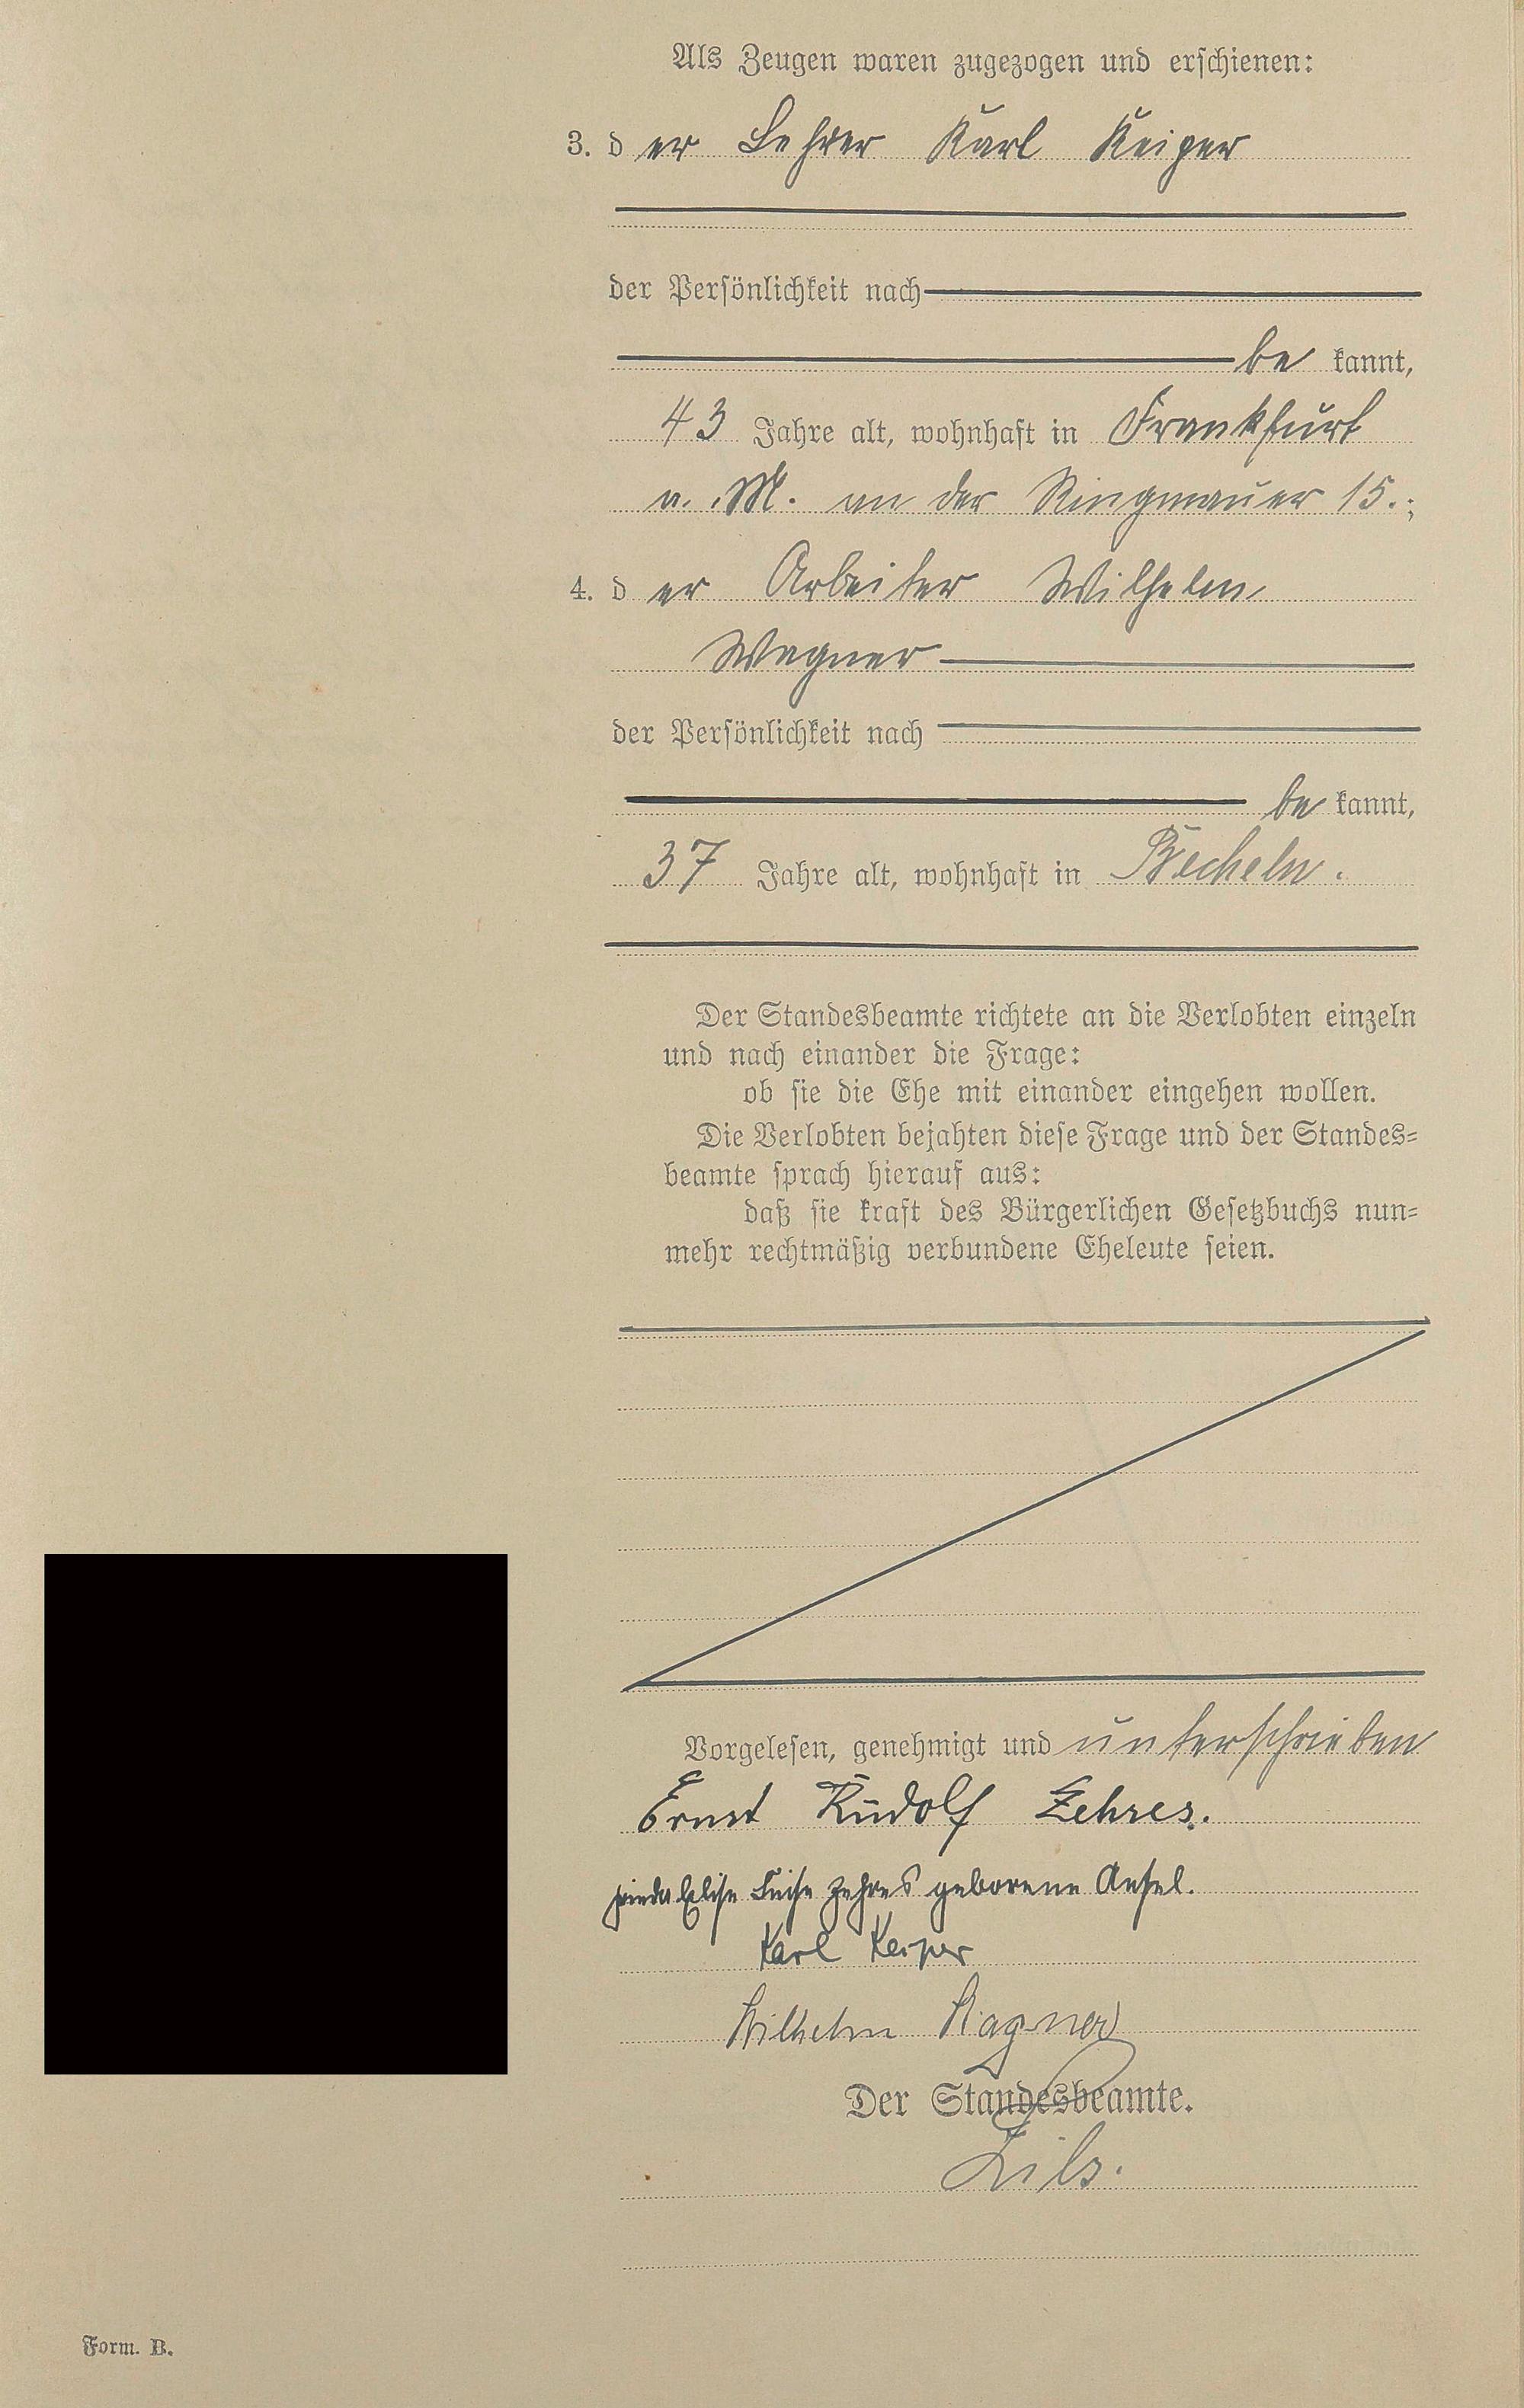 Als Zeugen waren zugezogen und erschienen:
3. der Lehrer Karl Keiper
der Persönlichkeit nach
be kannt,
43 Jahre alt, wohnhaft in Frankfurt
a. M. an der Ringmauer 15.;
4. der Arbeiter Wilhelm
Wagner
der Persönlichkeit nach
be kannt,
37 Jahre alt, wohnhaft in Becheln.
Der Standesbeamte richtete an die Verlobten einzeln
und nach einander die Frage:
ob sie die Ehe mit einander eingehen wollen.
Die Verlobten bejahten diese Frage und der Standes=
beamte sprach hierauf aus:
daß sie kraft des Bürgerlichen Gesetzbuchs nun=
mehr rechtmäßig verbundene Eheleute seien.
Vorgelesen, genehmigt und unterschrieben
Ernst Rudolf Zehres.
Elise Luise Zehres geborene Ansel.
Karl Keiper
Wilhelm Wagner
Der Standesbeamte.
Zils.
Form. B.